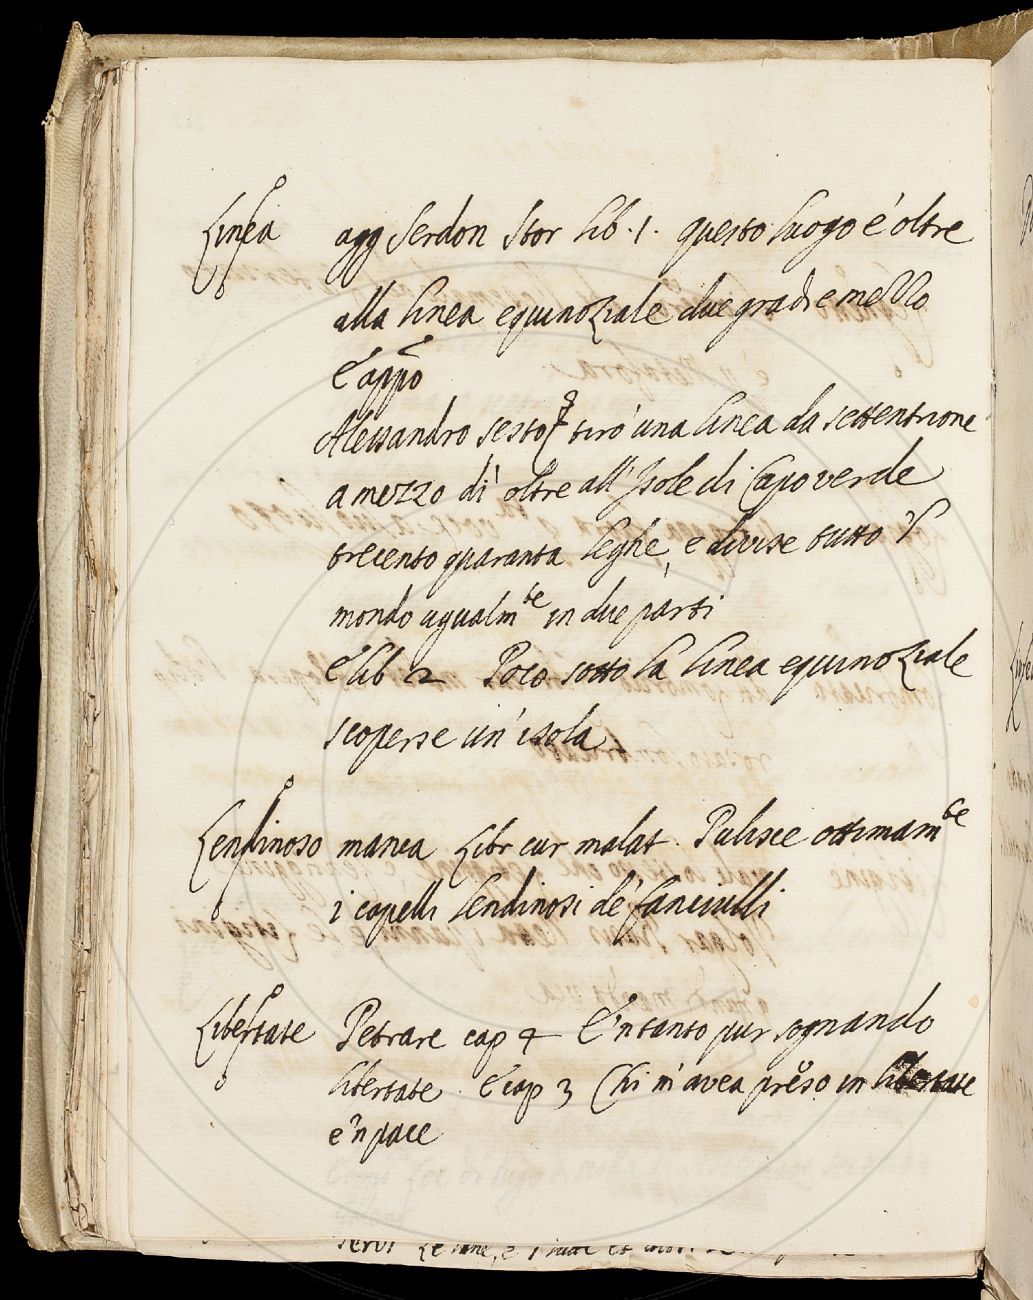 Linea agg Serdon Stor lib. 1. questo luogo è oltre
alla linea equinoziale due gradi e mezzo
E appō
Alessandro sesto tirò una linea da settentrione
a mezzo dì oltre all'Isole di Capo verde
trecento quaranta leghe, e divise tutto 'l
mondo ugualmte in due parti
E lib 2 Poco sotto la linea equinoziale
scoperse un'isola
Lendinoso manca Libr cur malat. Pulisce ottimamte
i capelli lendinosi de' fanciulli
Libertate Petrarc cap 4 E'ntanto pur sognando
libertate E cap 3 Chi m'avea preso in libertate
e'n pace